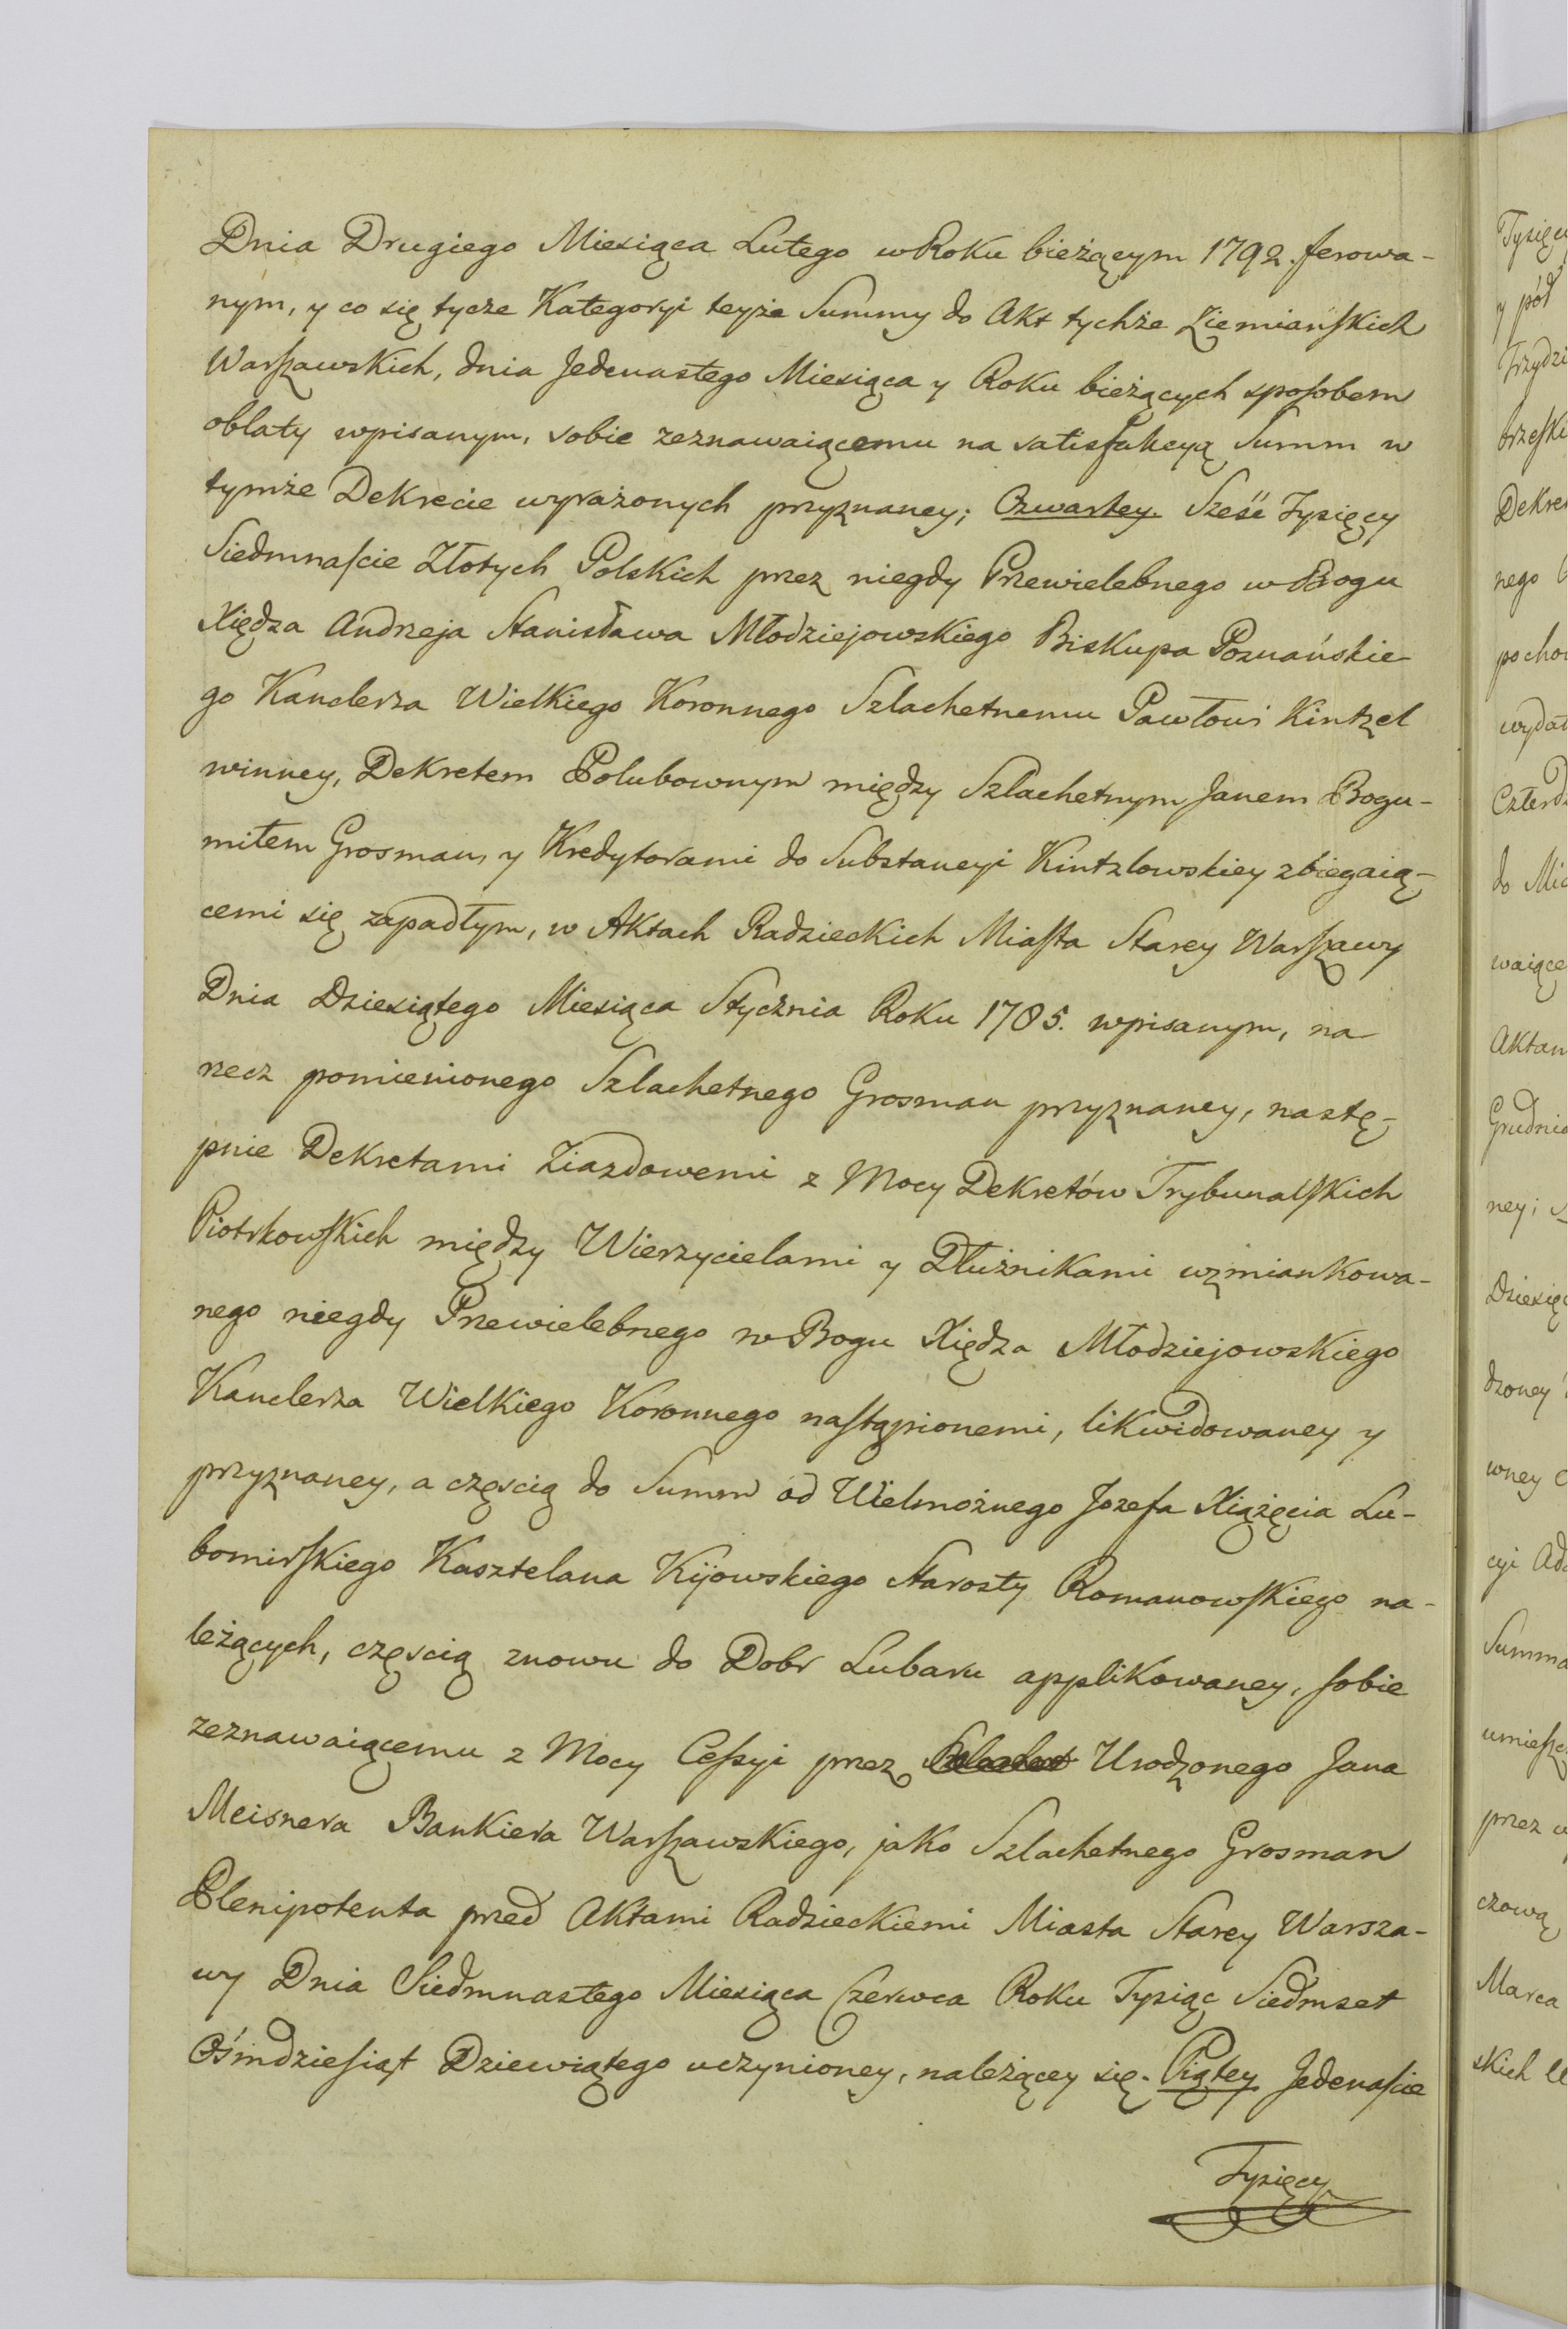 Dnia Drugiego Miesiąca Lutego w Roku bieżącym 1792. ferowa-
nym, y co się tycze Kategoryi teyże Summy do Akt tychże Ziemiańskich
Warszawskich, dnia Jedenastego Miesiąca y Roku bieżących sposobem
oblaty wpisanym, sobie zeznawaiącemu na satisfakcyą Summ w
tymże Dekrecie wyrażonych przyznaney; Czwartey Sześć Tysięcy
Siedmnaście Złotych Polskich przez niegdy Przewielebnego w Bogu
Xiędza Andrzeja Stanisława Młodziejowskiego Biskupa Poznańskie-
go Kanclerza Wielkiego Koronnego Szlachetnemu Pawłowi Kintzel
winney, Dekretem Polubownym między Szlachetnym Janem Bogu-
miłem Grosman, y Kredytorami do Substancyi Kintzlowskiey zbiegaią-
cemi się zapadłym, w Aktach Radzieckich Miasta Starey Warszawy
Dnia Dziesiątego Miesiąca Stycznia Roku 1785. wpisanym, na
rzecz pomienionego Szlachetnego Grosman przyznaney, nastę-
pnie Dekretami Ziazdowemi z Mocy Dekretów Trybunalskich
Piotrkowskich między Wierzycielami y Dłużnikami wzmiankowa-
nego niegdy Przewielebnego w Bogu Xiędza Młodziejowskiego
Kanclerza Wielkiego Koronnego nastąpionemi, likwidowaney y
przyznaney, a częścią do Summ od Wielmożnego Jozefa Xiążęcia Lu-
bomirskiego Kasztelana Kijowskiego Starosty Romanowskiego na-
leżących, częścią znowu do Dobr Lubaru applikowaney, sobie
zeznawaiącemu z Mocy Cessyi przez Urodzonego Jana
Meisnera Bankiera Warszawskiego, jako Szlachetnego Grosman
Plenipotenta przed Aktami Radzieckiemi Miasta Starey Warsza-
wy Dnia Siedmnastego Miesiąca Czerwca Roku Tysiąc Siedmset
Ośmdziesiąt Dziewiątego uczynioney, należącey się. Piątey Jedenaście
Tysięcy